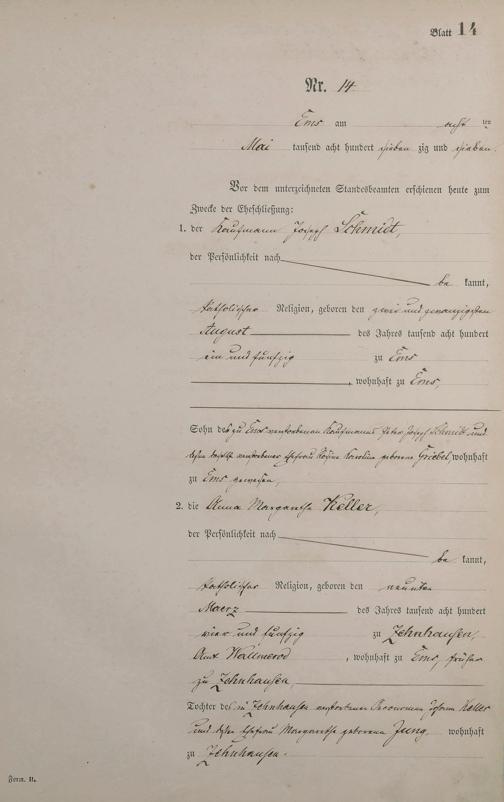 Blatt 14
Nr. 14
Ems am acht ten
Mai tausend acht hundert sieben zig und sieben.
Vor dem unterzeichneten Standesbeamten erschienen heute zum
Zwecke der Eheschließung:
1. der Kaufmann Joseph Schmidt,
der Persönlichkeit nach
be kannt,
katholischer Religion, geboren den zwei und zwanzigsten
August des Jahres tausend acht hundert
ein und fünfzig zu Ems
, wohnhaft zu Ems,
Sohn des zu Ems verstorbenen Kaufmanns Peter Joseph Schmidt und
dessen daselbst verstorbener Ehefrau Karoline geborene Griebel, wohnhaft
zu Ems gewesen,
2. die Anna Margaretha Keller,
der Persönlichkeit nach
be kannt,
katholischer Religion, geboren den neunten
Maerz des Jahres tausend acht hundert
vier und fünfzig zu Zehnhausen,
Amt Wallmerod, wohnhaft zu Ems, früher
zu Zehnhausen,
Tochter des zu Zehnhausen verstorbenen Johann Keller
und dessen Ehefrau Margaretha geborene Jung wohnhaft
zu Zehnhausen.
Form. B.